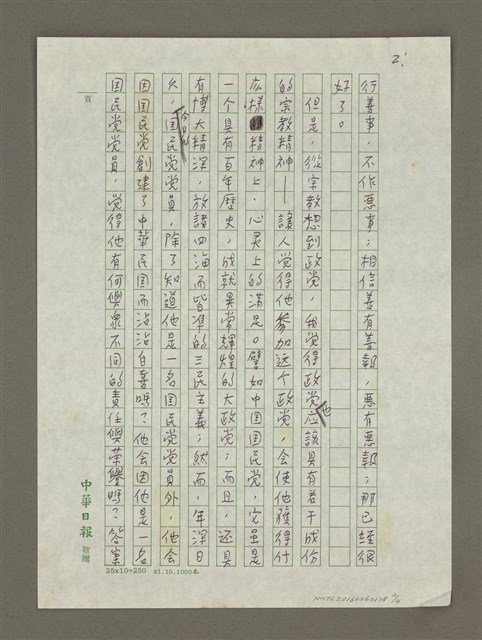 2.
行善事，不作惡事；相信善有善報，惡有惡報；那已經很
好了。
但是，從宗教想到政党，我觉得政党也应該具有若干成份
的宗教精神——讓人觉得他參加这个政党，会使他獲得什
広樣精神上、心灵上的満足。譬如中国国民党，它虽是
一个具有百年歷史，成就異常輝煌的大政党；而且，还具
有博大精深，放諸四海而皆準的三民主義；然而，年深日
久，今日的国民党党員，除了知道他是一名国民党党員外，他会
因国民党創建了中華民国而沾沾自喜嗎？他会因他是一名
国民党党員，觉得他有何與眾不同的責任與荣譽嗎？答案
頁
中華日報 敬贈
25x10=250 81.10.1000本
NMTL20160060138 2/14